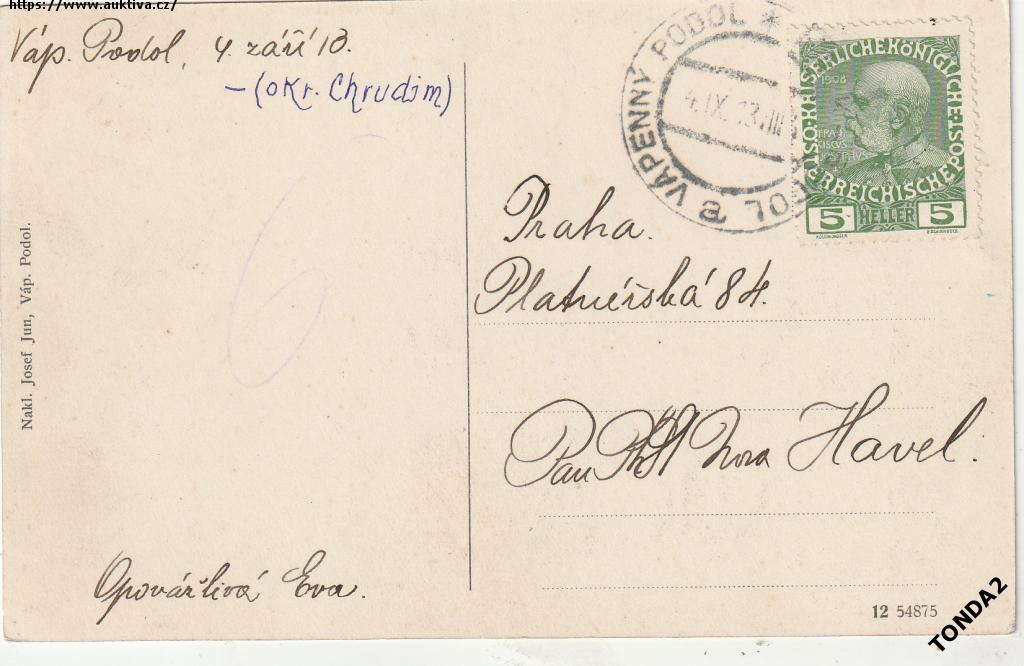 https://www.auktiva.cz/
Váp. Podol, 4. září 13.
—(okr. Chrudim)
VÁPENNÝ PODOL * VÁPENNÝ PODOL a
4.IX.13.III
KAISERLICHE KÖNIGLICHE ÖSTERREICHISCHE POST
1908
5 HELLER 5
Praha.
Platnéřská 84.
Pan Nora Havel.
Nakl. Josef Jun, Váp. Podol.
Opovážlivá Eva.
12 54875
TONDA2